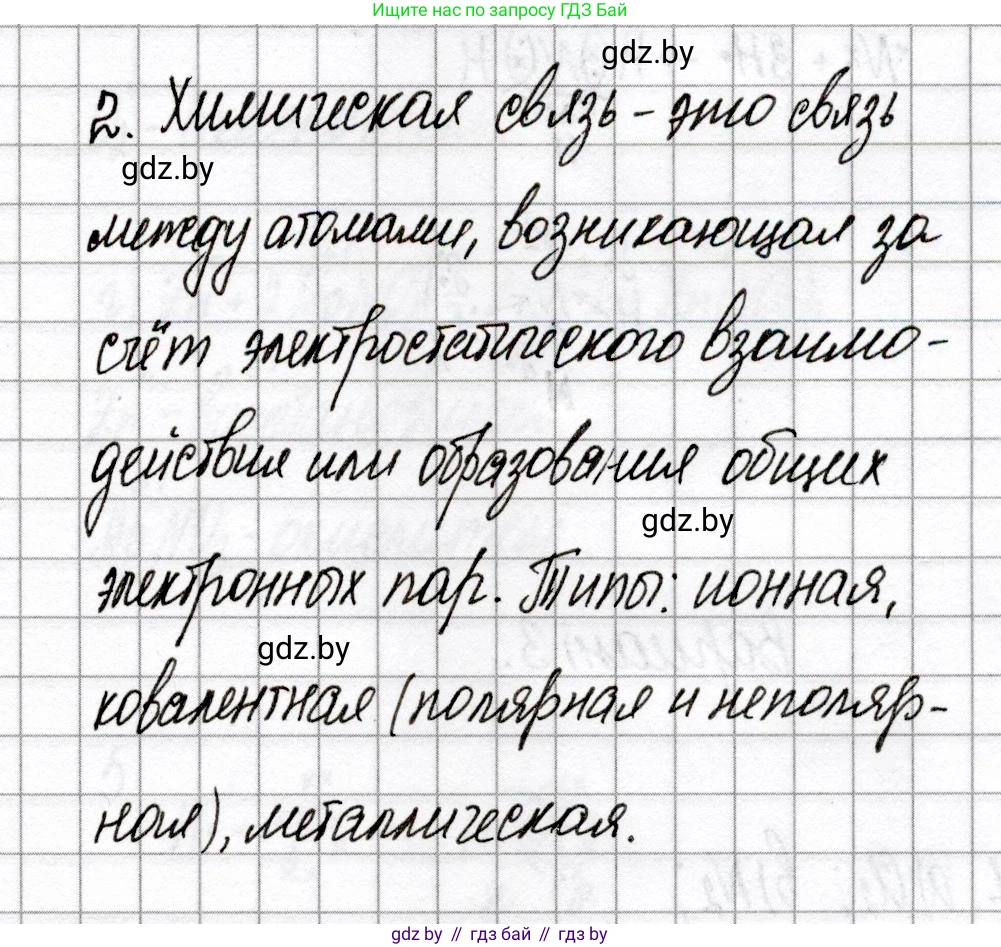 Ищите нас по запросу ГДЗ Бай
gdz.by
2. Химическая связь - это связь
gdz.by
между атомами, возникающая за
счёт электростатического взаимо-
действия или образования общих
gdz.by
электронных пар. Типы: ионная,
gdz.by
ковалентная (полярная и неполяр-
ная), металлическая.
gdz.by // гдз бай // gdz.by